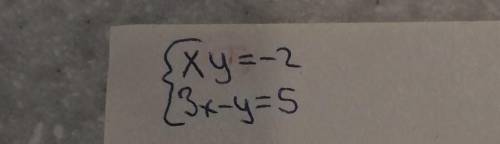 xy=-2
3x-y=5